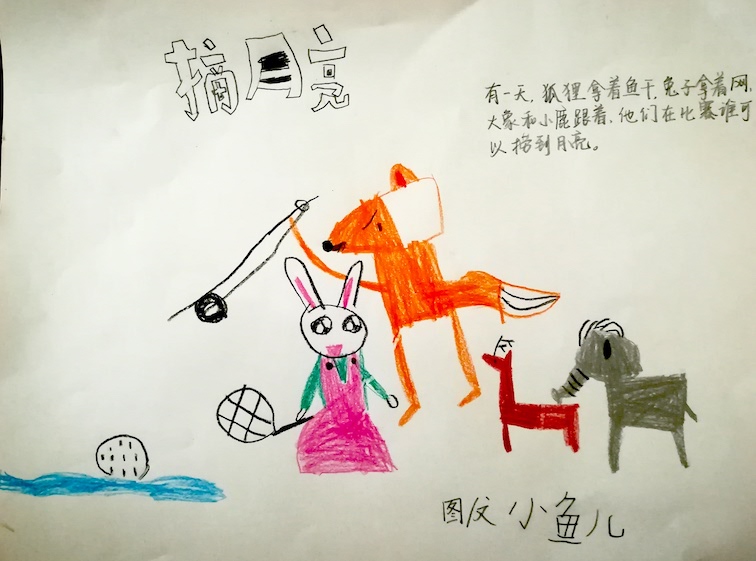 摘月亮
有一天，狐狸拿着鱼干，兔子拿着网，
大象和小鹿跟着，他们在比赛谁可
以捞到月亮。
图文 小鱼儿